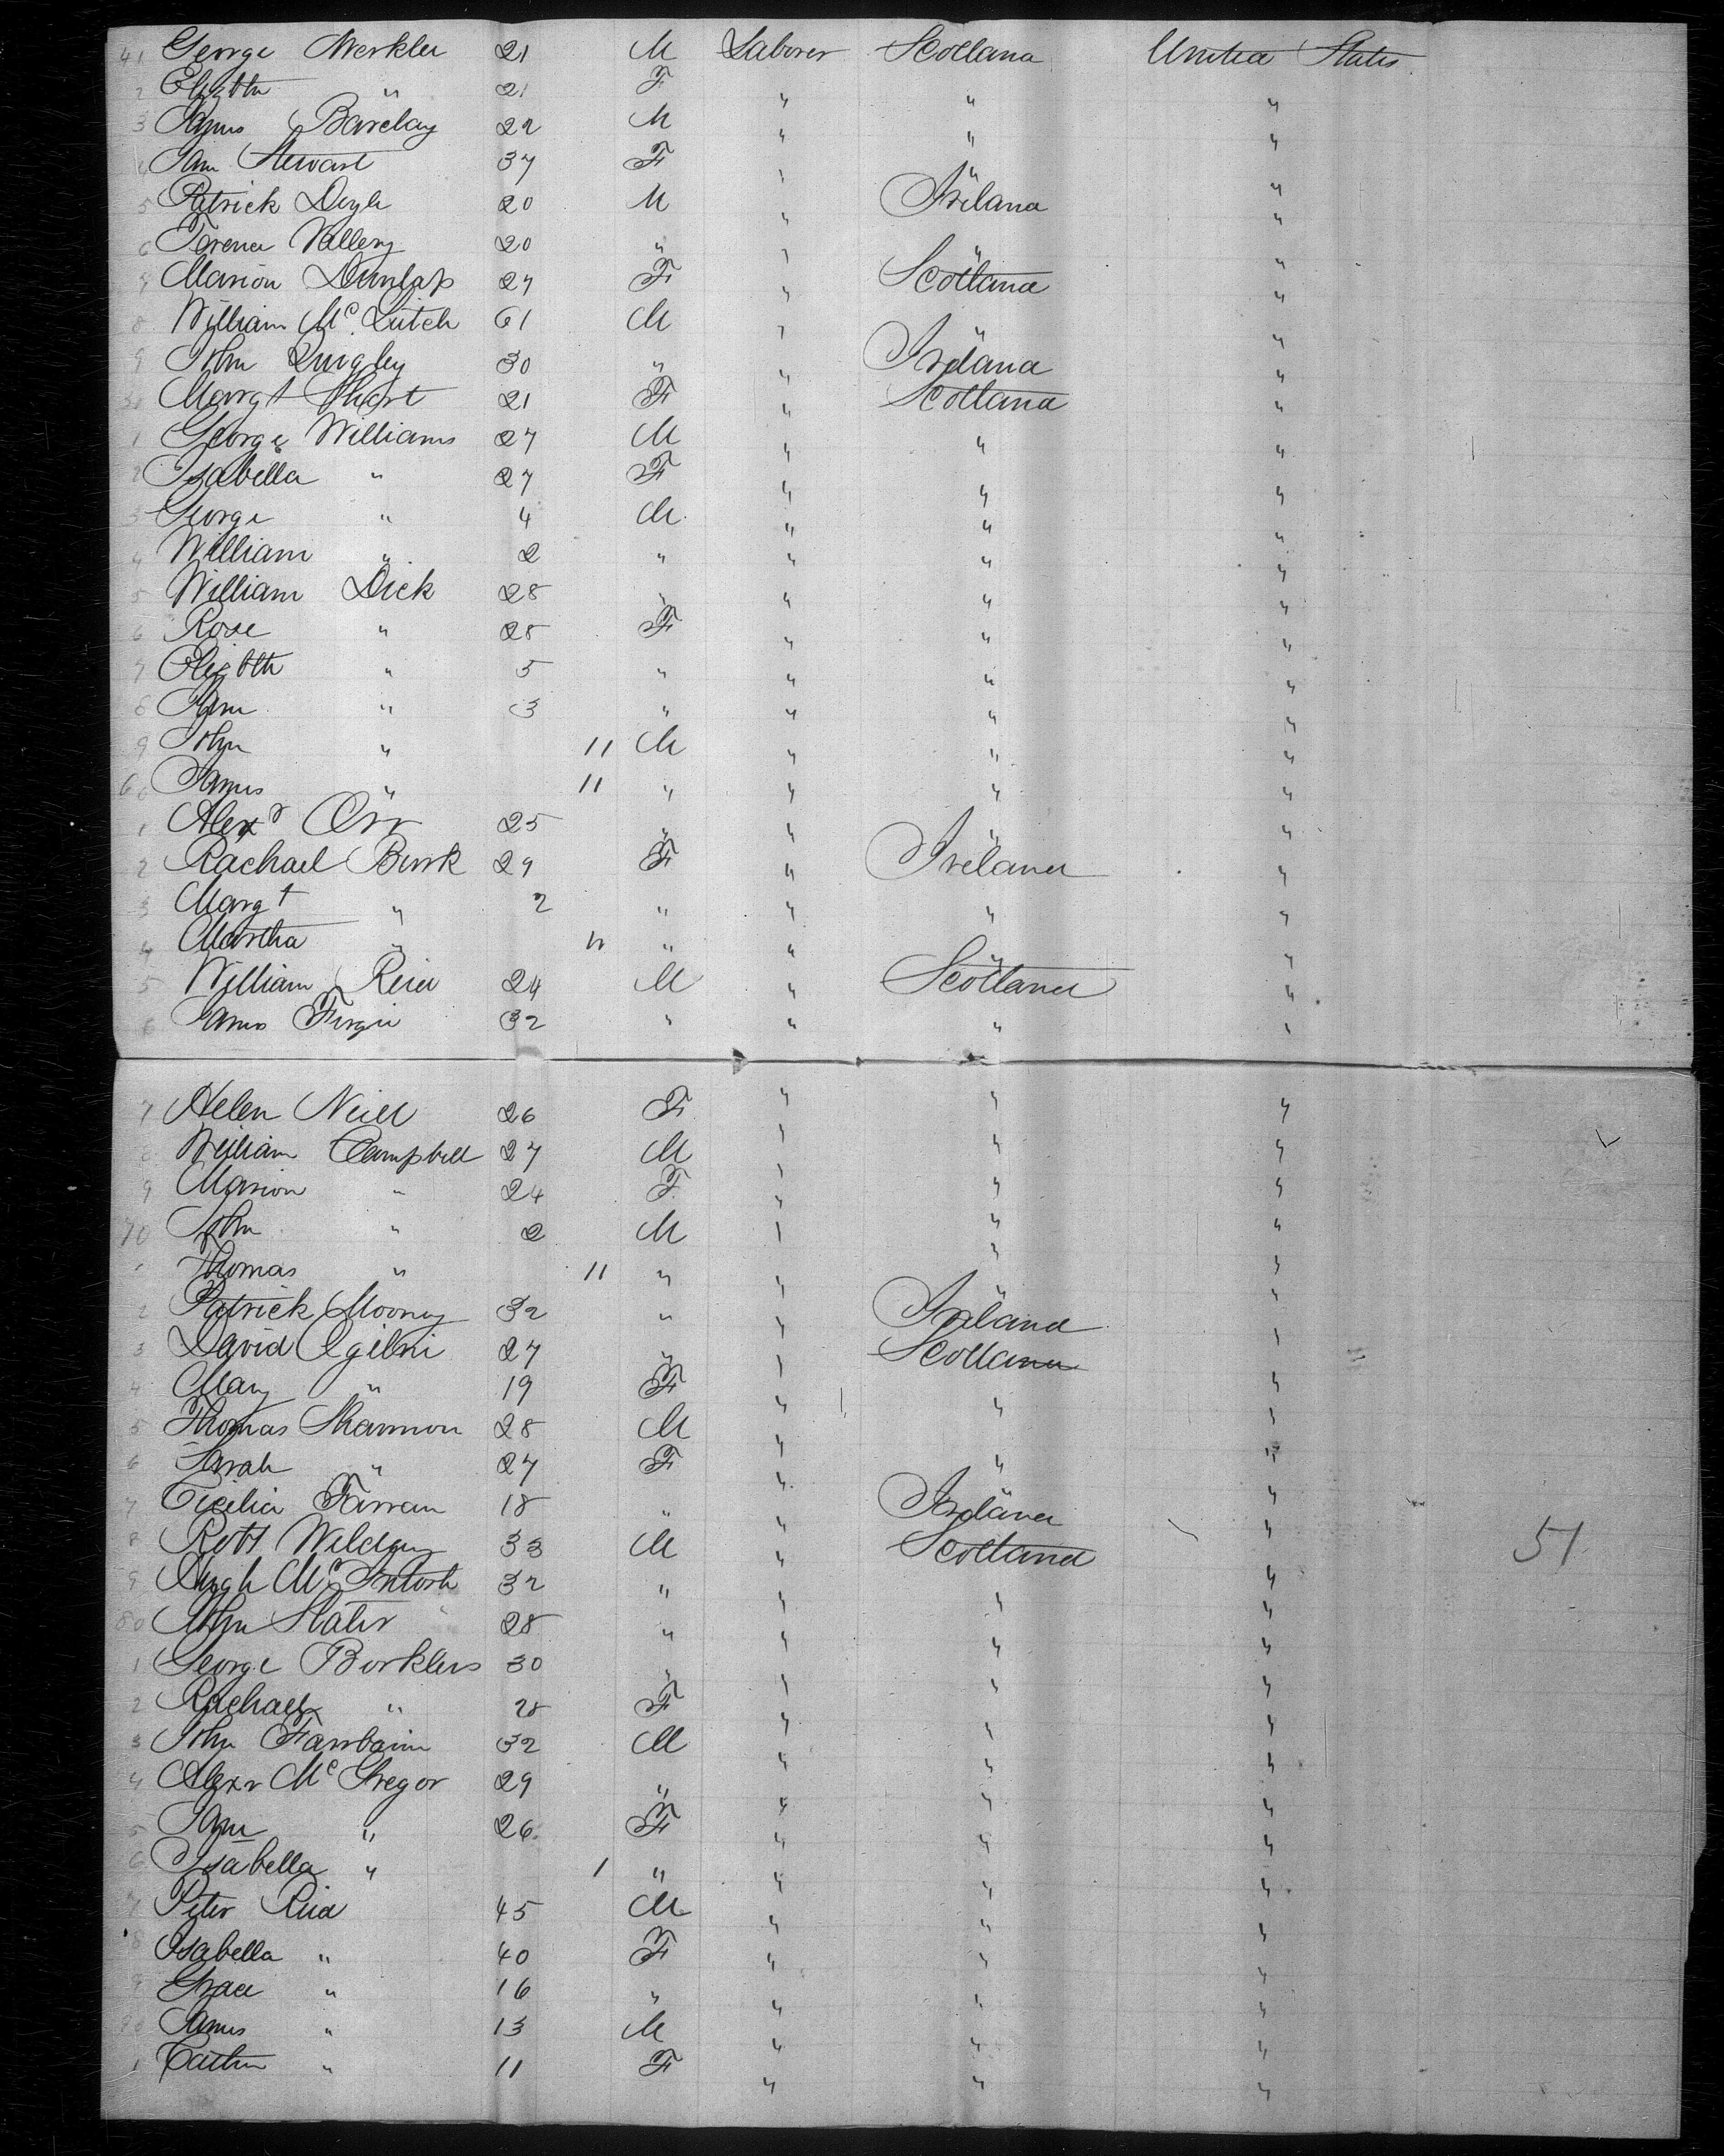 41 George Merkler 21 M Laborer Scotland United States
2 Elizbth " 21 F " " "
3 James Barclay 22 M " " "
4 Jane Stewart 37 F " " "
5 Patrick Doyle 20 M " Ireland "
6 Terence Vallery 20 " " " "
7 Marion Dunlap 27 F " Scotland "
8 William Mc 61 M " " "
9 John Quigley 30 " " Ireland "
50 Margt Short 21 F " Scotland "
1 George Williams 27 M " " "
2 Isabella " 27 F " " "
3 George " 4 M " " "
4 William " 2 " " " "
5 William Dick 28 " " " "
6 Rose " 28 F " " "
7 Elizbth " 5 " " " "
8 Jane " 3 " " " "
9 John " 11 M " " "
60 James " 11 " " " "
1 Alexr Orr 25 " " " "
2 Rachael Burk 29 F " Ireland "
3 Margt " 2 " " " "
4 Martha " 11 " " " "
5 William Reid 24 M " Scotland "
6 James 32 " " " "
7 Helen Neill 26 F " " "
8 William Campbell 27 M " " "
9 Marion " 24 F " " "
70 John " 2 M " " "
1 Thomas " 11 " " " "
2 Patrick Mooney 32 " " Ireland "
3 David Ogilvie 27 " " Scotland "
4 Mary " 19 F " " "
5 Thomas Shannon 28 M " " "
6 Sarah " 27 F " " "
7 Cicilia Farran 18 " " Ireland "
8 Robt 33 M " Scotland " 51
9 Hugh McIntosh 32 " " " "
80 John Slater 28 " " " "
1 George Borklers 30 " " " "
2 Rachael " 28 F " " "
3 John Fairbairn 32 M " " "
4 Alexr McGregor 29 " " " "
5 Jane " 26 F " " "
6 Isabella " 1 " " " "
7 Peter Reid 45 M " " "
8 Isabella " 40 F " " "
9 Grace " 16 " " " "
90 James " 13 M " " "
1 " 11 F " " "